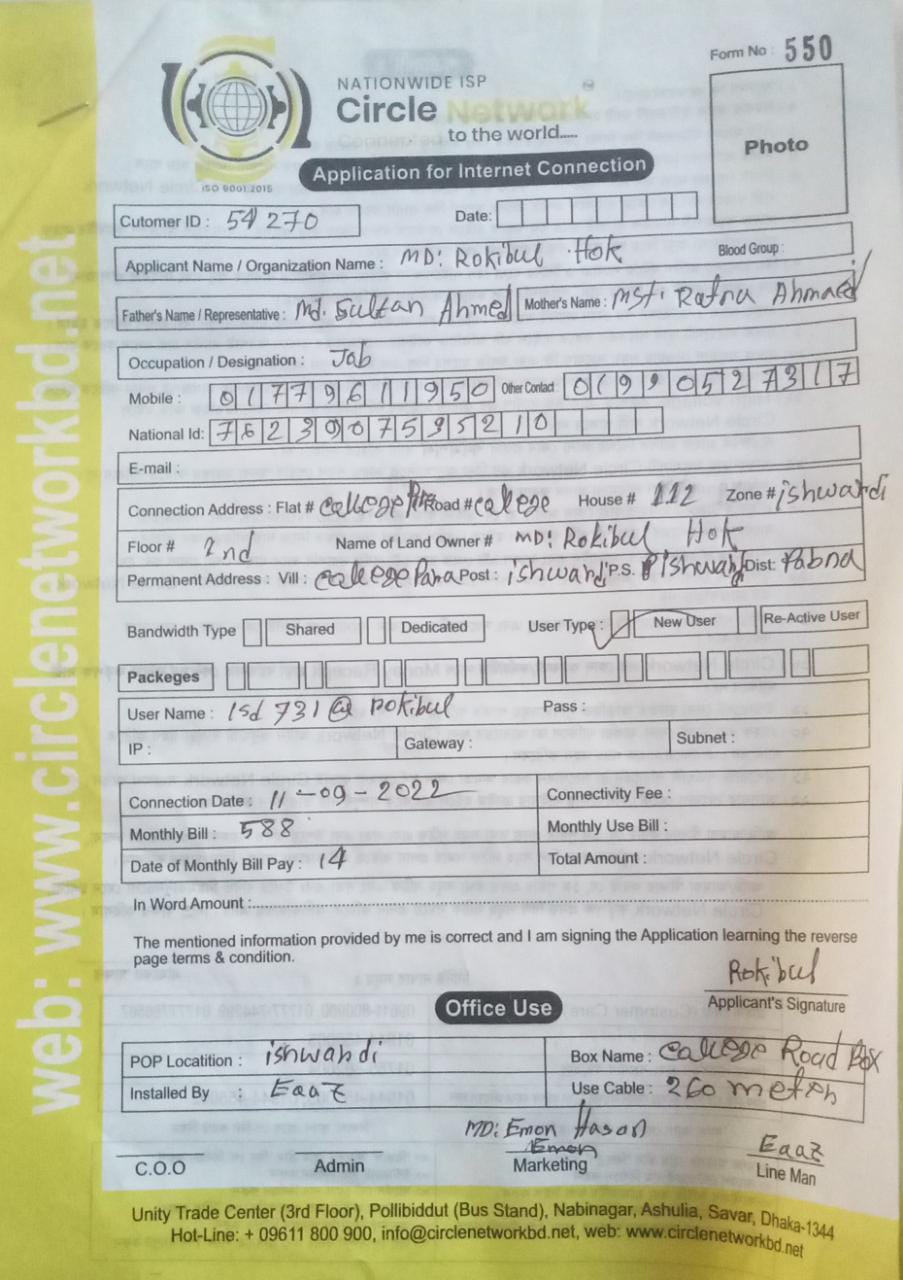 Form No : 550
NATIONWIDE ISP
Circle Network
to the world.....
ISO 9001:2015
Application for Internet Connection
Photo
Cutomer ID : 54270
Date:
Applicant Name / Organization Name : MD: Rokibul Hok
Blood Group :
Father's Name / Representative : Md. Sultan Ahmed
Mother's Name : Mst. Ratna Ahmaed
Occupation / Designation : Job
Mobile : 01779611950 Other Contact 01990527317
National Id: 762390759 5210
E-mail :
Connection Address : Flat # College Para Road # college House # 112 Zone # ishwardi
Floor # 2nd Name of Land Owner # MD: Rokibul Hok
Permanent Address : Vill : College Para Post : ishwardi P.S. ishwardi Dist: Pabna
Bandwidth Type Shared Dedicated User Type : New User Re-Active User
Packeges
User Name : Isd 731@ rokibul Pass :
IP : Gateway : Subnet :
Connection Date : 11-09-2022 Connectivity Fee :
Monthly Bill : 588 Monthly Use Bill :
Date of Monthly Bill Pay : 14 Total Amount :
In Word Amount :
The mentioned information provided by me is correct and I am signing the Application learning the reverse
page terms & condition.
Rokibul
Applicant's Signature
Office Use
POP Locatition : ishwardi Box Name : College Road Box
Installed By : Eaaz Use Cable : 260 meter
MD: Emon Hasan
Emon Eaaz
C.O.O Admin Marketing Line Man
Unity Trade Center (3rd Floor), Pollibiddut (Bus Stand), Nabinagar, Ashulia, Savar, Dhaka-1344
Hot-Line: + 09611 800 900, info@circlenetworkbd.net, web: www.circlenetworkbd.net
web: www.circlenetworkbd.net